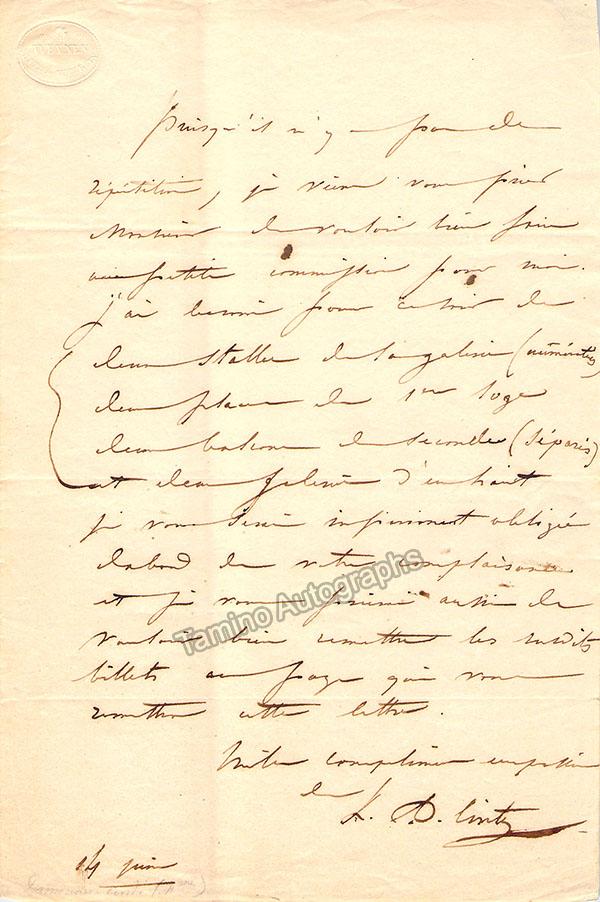 Puisqu'il n'y a pas de
répétition, je viens vous prier
Monsieur de vouloir bien faire
une petite commission pour moi.
j'ai besoin pour ce soir de
deux stalles de la galerie (numérotées)
deux places de 1ères loge
deux balcons de secondes (séparés)
et deux galerie d'en haut
je vous serai infiniment obligée
d'abord de votre complaisance
et je vous prierai aussi de
vouloir bien remettre les susdits
billets au page qui vous
remettra cette lettre.
Mille complimens empressés
de
L. D. Cinti
14 juin
Tamino Autographs